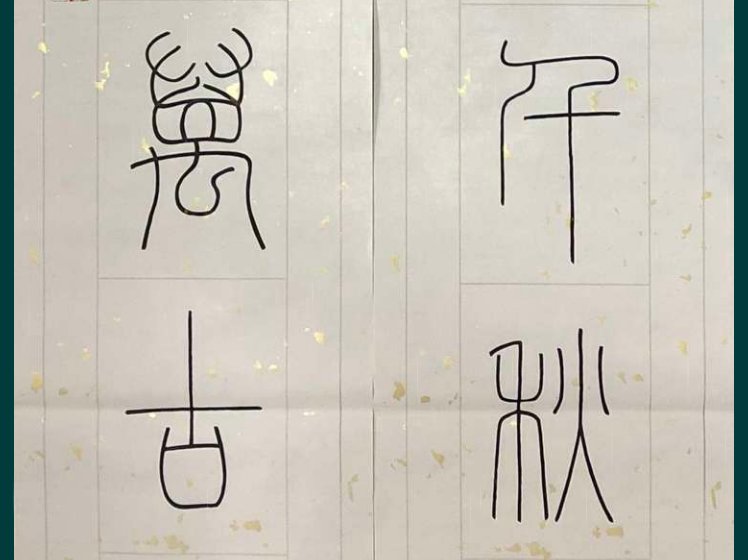 千秋
萬古